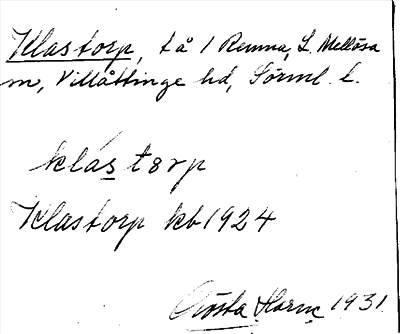 Klastorp, tå 1 Remna, L. Mellösa
sn, Villåttinge hd, Sörml. l.
klás torp
Klastorp kb 1924
Gösta Harne 1931